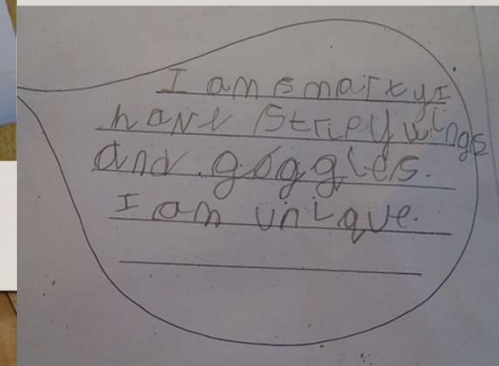 I am smarty I
have stripy wings
and goggles.
I am unique.